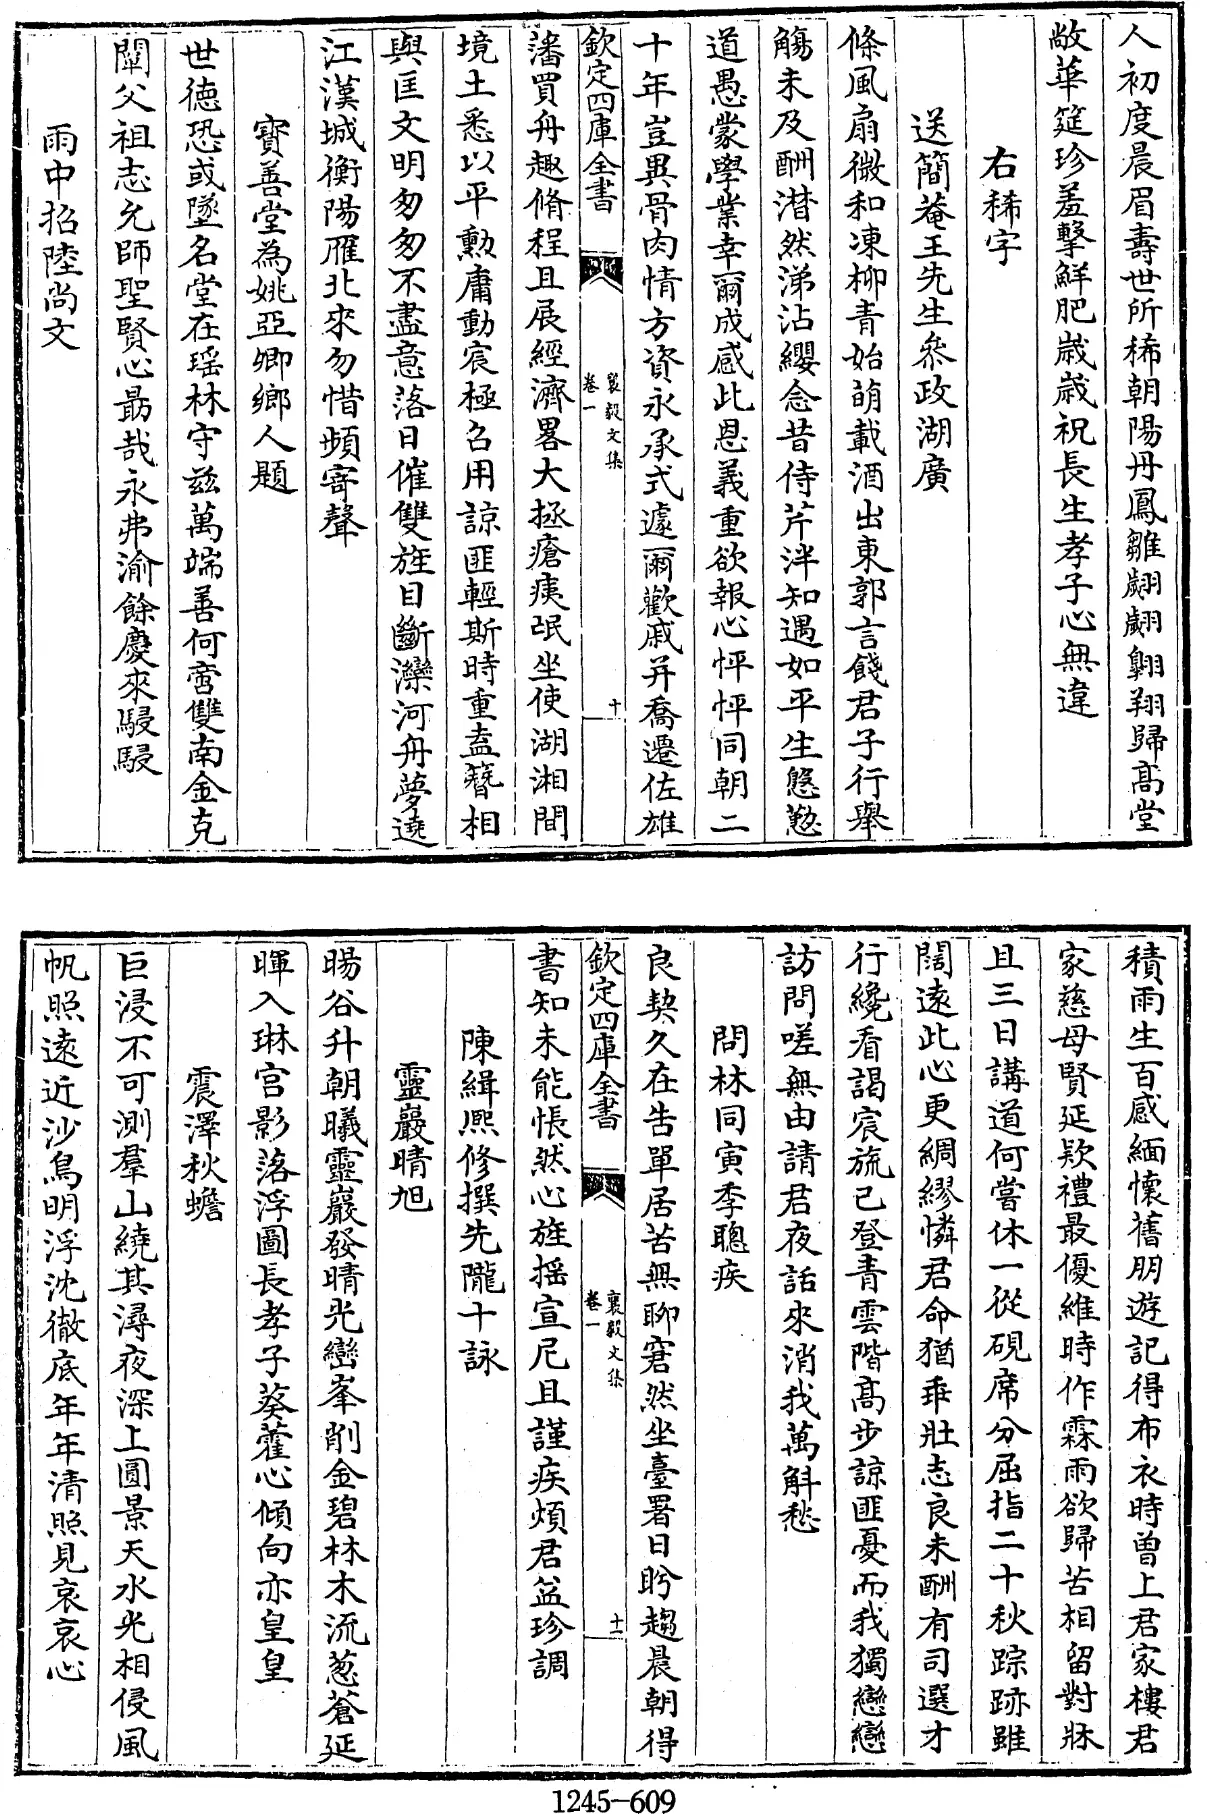 人初度晨眉壽世所稀朝陽丹鳳雛翽翽翺翔歸髙堂
敞華筵珍羞擊鮮肥歳歳祝長生孝子心無違
右稀字
送簡菴王先生叅政湖廣
條風扇微和凍柳青始萌載酒出東郭言餞君子行舉
觴未及酬潸然涕沾纓念昔侍芹泮知遇如平生慇懃
道愚蒙學業幸爾成感此恩義重欲報心怦怦同朝二
十年豈異骨肉情方資永承式遽爾歡戚并喬遷佐雄
欽定四庫全書
襄毅文集
卷一
十
藩買舟趣脩程且展經濟畧大拯瘡痍氓坐使湖湘間
境土悉以平勲庸動宸極召用諒匪輕斯時重盍簪相
與匡文明匆匆不盡意落日催雙旌目斷灤河舟夢遶
江漢城衡陽雁北來勿惜頻寄聲
寳善堂為姚亞卿鄉人題
世徳恐或墜名堂在瑶林守兹萬端善何啻雙南金克
闡父祖志允師聖賢心勗哉永弗渝餘慶來駸駸
雨中招陸尚文
積雨生百感緬懷舊朋遊記得布衣時曽上君家樓君
家慈母賢延欵禮最優維時作霖雨欲歸苦相留對牀
且三日講道何嘗休一從硯席分屈指二十秋踪跡雖
闊逺此心更綢繆憐君命猶乖壯志良未酬有司選才
行纔看謁宸旒已登青雲階髙步諒匪憂而我獨戀戀
訪問嗟無由請君夜話來消我萬斛愁
問林同寅季聰疾
良契久在告單居苦無聊窘然坐臺署日盻趨晨朝得
欽定四庫全書
襄毅文集
卷一
十一
書知未能悵然心旌揺宣尼且謹疾煩君益珍調
陳緝熙修撰先隴十詠
靈巖晴旭
暘谷升朝曦靈巖發晴光巒峯削金碧林木流葱蒼延
暉入琳宫影落浮圖長孝子葵藿心傾向亦皇皇
震澤秋蟾
巨浸不可測羣山繞其潯夜深上圓景天水光相侵風
帆照逺近沙鳥明浮沈徹底年年清照見哀哀心
1245-609